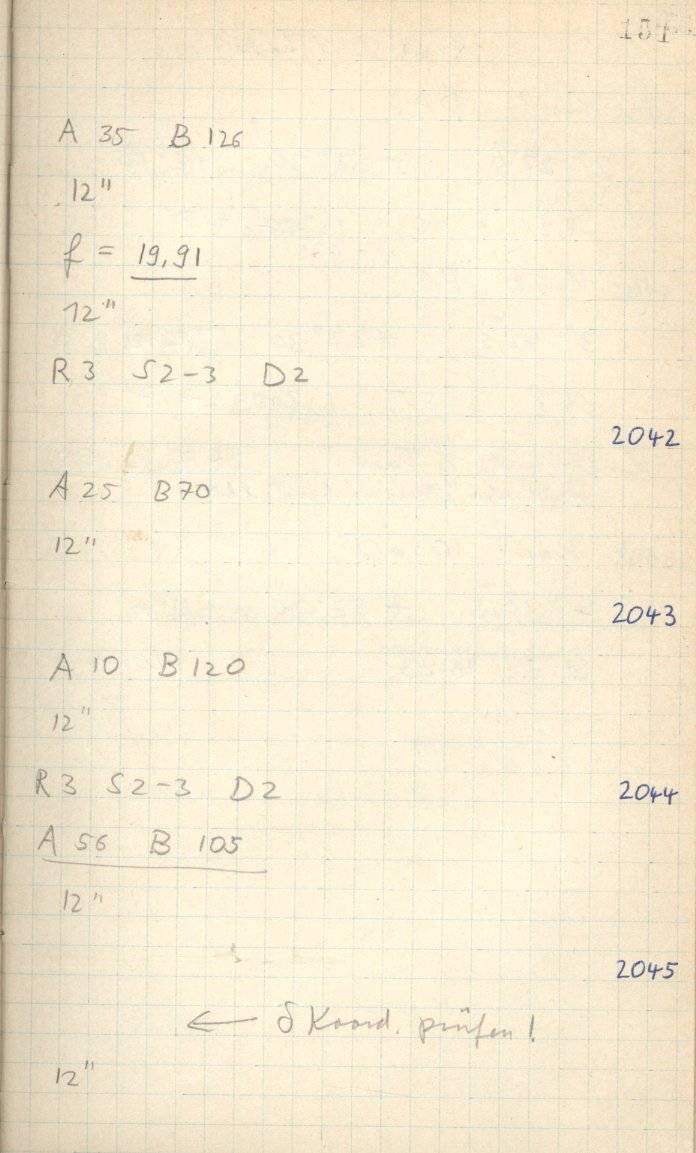 A 35 B 126
12"
f = 19,91
12"
R 3 S 2-3 D 2
2042
A 25 B 70
12"
2043
A 10 B 120
12"
R 3 S 2-3 D 2
2044
A 56 B 105
12"
2045
← δ Koord. prüfen!
12"